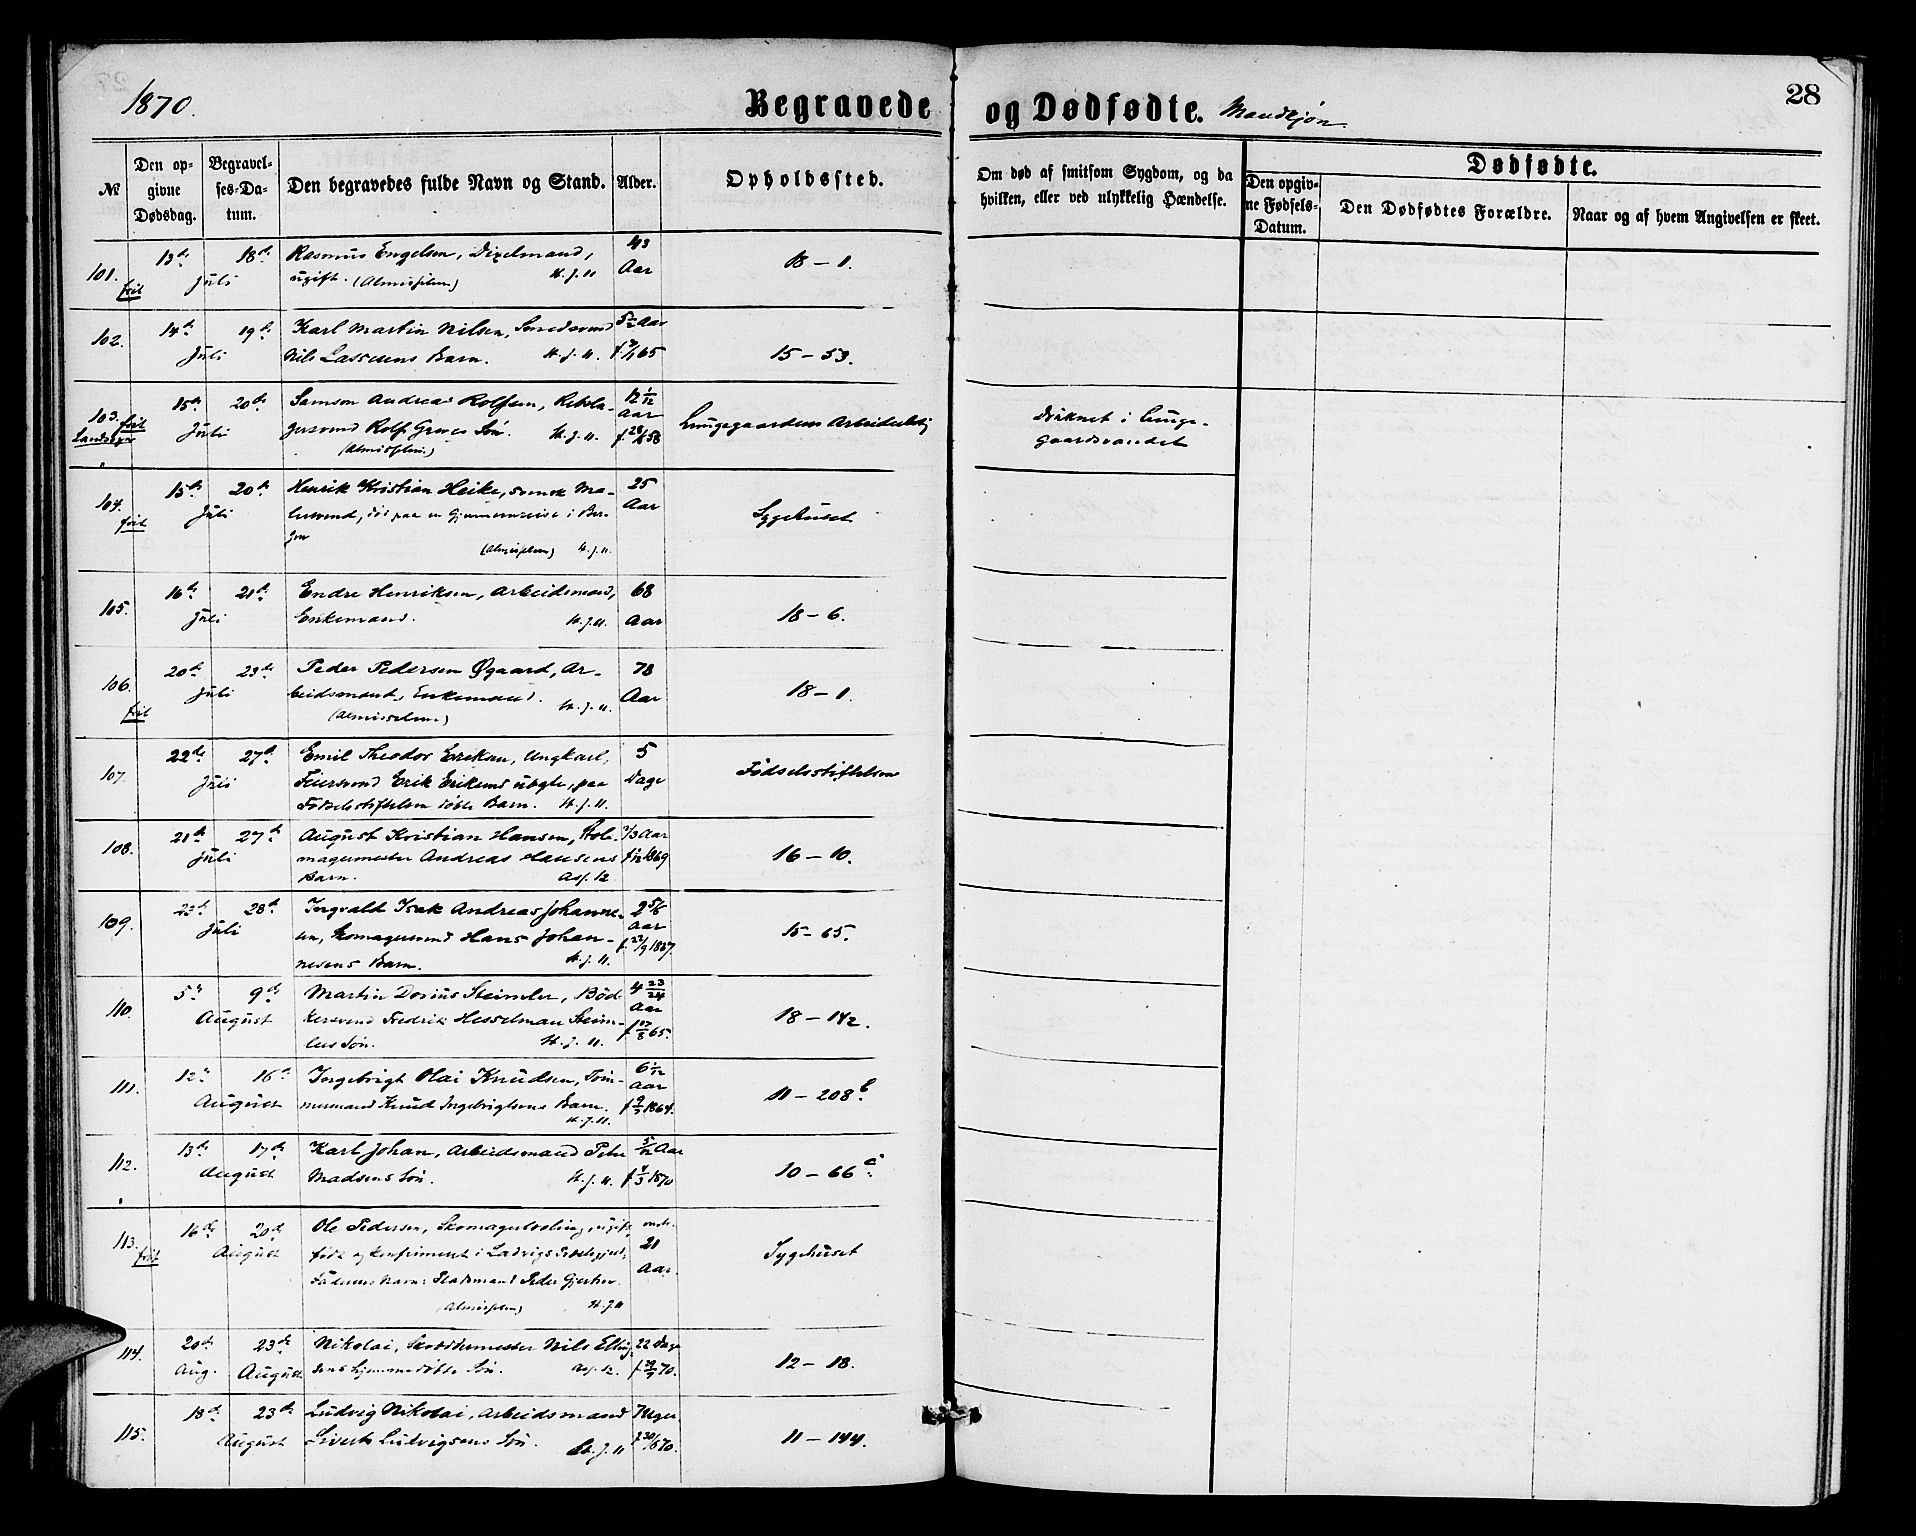 1870.
Begravede og Dødfødte. Mandkjøn.
28
№
Den opgivne Dødsdag.
Begravelses-Datum.
Den begravedes fulde Navn og Stand.
Alder.
Opholdssted.
Om død af smitsom Sygdom, og da hvilken, eller ved ulykkelig Hændelse.
Dødfødte.
Den opgivne Fødsels-Datum.
Den Dødfødtes Forældre.
Naar og af hvem Angivelsen er skeet.
101. 13de 18de Rasmus Engelsen, Dixelmand, 43
frit Juli ugift. (Almisselem) St. J. 11 Aar 18 – 1.
102. 14de 19de Karl Martin Nilsen, Smedsvend 5 1/2 Aar
Juli Nils Lassens Barn. St. J. 11. 65 15 – 53.
103. frit 15de 20de Samson Andreas Rolfsen, Rebsla- 12 1/12 Aar
Juli gersvend Rolf Søn. St. J. 11. 58 Lungegaardens
(Almisselem)
Druknet i Lunge-
gaardsvandet
104. 15de 20de Henrik Kristian Heike, svensk Ma- 25
frit Juli lersvend, død paa en Gjennemreise i Ber- Aar Sygehuset
gen (Almisselem) St. J. 11.
105. 16de 21de Endre Henriksen, Arbeidsmand, 68
Juli Enkemand. St. J. 11. Aar 18 – 6.
106. 20de 23de Peder Pedersen Øgaard, Ar- 78
frit Juli beidsmand, Enkemand. St. J. 11. Aar 18 – 1.
(Almisselem)
107. 22de 27de Emil Theodor Eriksen, Ungkarl, 5
Juli Feiersvend Erik Eriksens uægte, paa Dage Fødselsstiftelsen
Fødselsstiftelsen døbte Barn. St. J. 11.
108. 21de 27de August Kristian Hansen, Stole- 2/3 Aar
Juli magermester Andreas Hansens 1869 16 – 10.
Barn. Asf. 12
109. 23de 28de Ingvald Isak Andreas Johanne- 2 5/6
Juli sen, Skomagersvend Hans Johan- Aar f. 22/9 1867. 15 – 65.
nesens Barn. St. J. 11.
110. 5te 9de Martin Dorius Steimler, Bød- 4 23/24
August kersvend Fredrik Hesselman Steim- Aar 18 – 142.
lers Søn. St. J. 11. f. 17/8 65.
111. 12te 16de Ingebrigt Olai Knudsen, Tøm- 6 1/12 Aar
August mermand Knud Ingebrigtsens Barn. 1864. 11 – 208 b.
St. J. 11.
112. 13de 17de Karl Johan, Arbeidsmand Peter 5/12 Aar
August Madsens Søn. St. J. 11. 1870 10 – 66 c.
113. 16de 20de Ole Pedersen, ugift, omtr.
frit August født og konfirmeret i Ladvigs 21 Sygehuset
Faderens Navn: Pladsmand Peder Aar.
(Almisselem) St. J. 11
114. 20de 23de Nikolai, Skræddermester Nils Elling- 22 Dage
Aug. August sens hjemmedøbte Søn. Asf. 12. 70. 12 – 18.
115. 18de 23de Ludvig Nikolai, Arbeidsmand 7 Uger
August Siverts Ludvigsens Søn. St. J. 11 f. 30/6 70. 11 – 144.